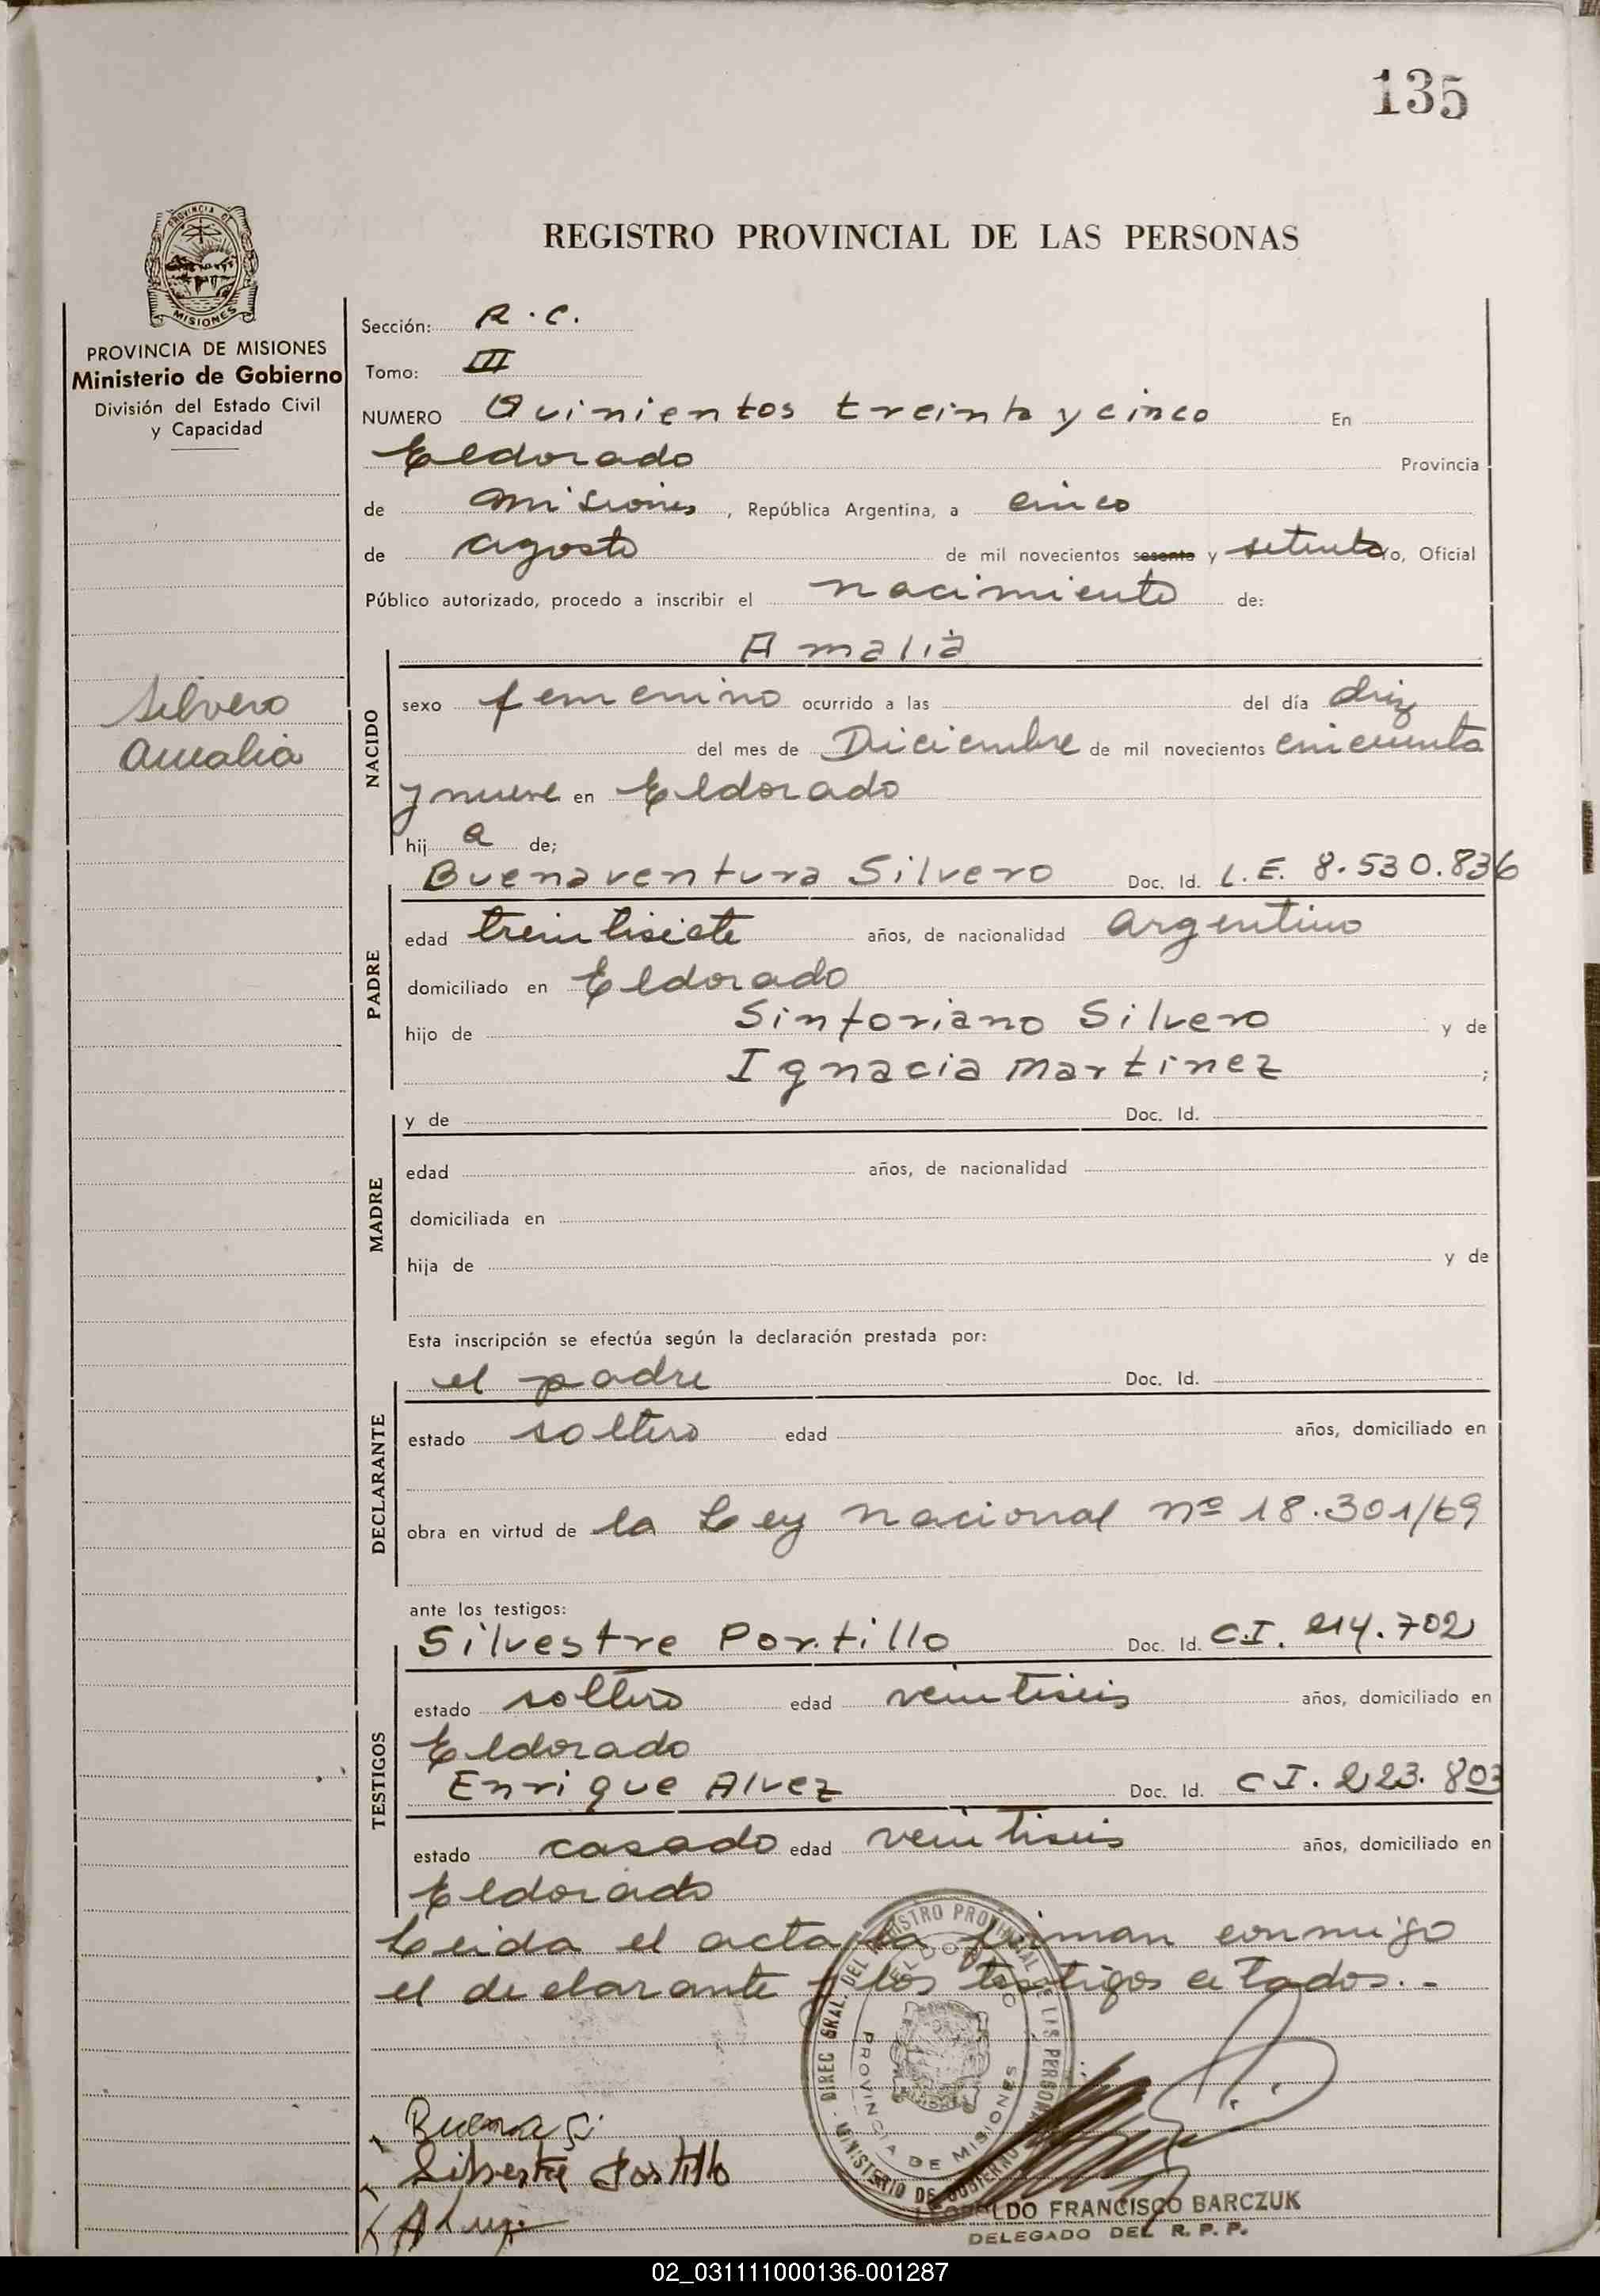 135
REGISTRO PROVINCIAL DE LAS PERSONAS
PROVINCIA DE MISIONES
Ministerio de Gobierno
División del Estado Civil
y Capacidad
Silvero
Amalia
Sección: R.C.
Tomo: III
NUMERO Quinientos treinta y cinco En
Eldorado Provincia
de Misiones, República Argentina, a cinco
de agosto de mil novecientos sesenta y setenta yo, Oficial
Público autorizado, procedo a inscribir el nacimiento de:
Amalia
NACIDO
sexo femenino ocurrido a las del día diez
del mes de Diciembre de mil novecientos cincuenta
y nueve en Eldorado
hij a de;
Buenaventura Silvero Doc. Id. L.E. 8.530.836
PADRE
edad treintisiete años, de nacionalidad argentino
domiciliado en Eldorado
hijo de Sinforiano Silvero y de
Ignacia Martinez ;
y de Doc. Id.
MADRE
edad años, de nacionalidad
domiciliada en
hija de y de
Esta inscripción se efectúa según la declaración prestada por:
el padre Doc. Id.
DECLARANTE
estado soltero edad años, domiciliado en
obra en virtud de la Ley Nacional Nº 18.301/69
ante los testigos:
Silvestre Portillo Doc. Id. C.I. 214.702
TESTIGOS
estado soltero edad veintiseis años, domiciliado en
Eldorado
Enrique Alvez Doc. Id. C.I. 223.803
estado casado edad veintiseis años, domiciliado en
Eldorado
Leida el acta la firman conmigo
el declarante y los testigos citados.-
DIREC GRAL. DEL REGISTRO PROVINCIAL DE LAS PERSONAS
MINISTERIO DE GOBIERNO
ELDORADO
PROVINCIA DE MISIONES
Buena Si
Silbestre Portillo
LEOPOLDO FRANCISCO BARCZUK
DELEGADO DEL R. P. P.
02_031111000136-001287